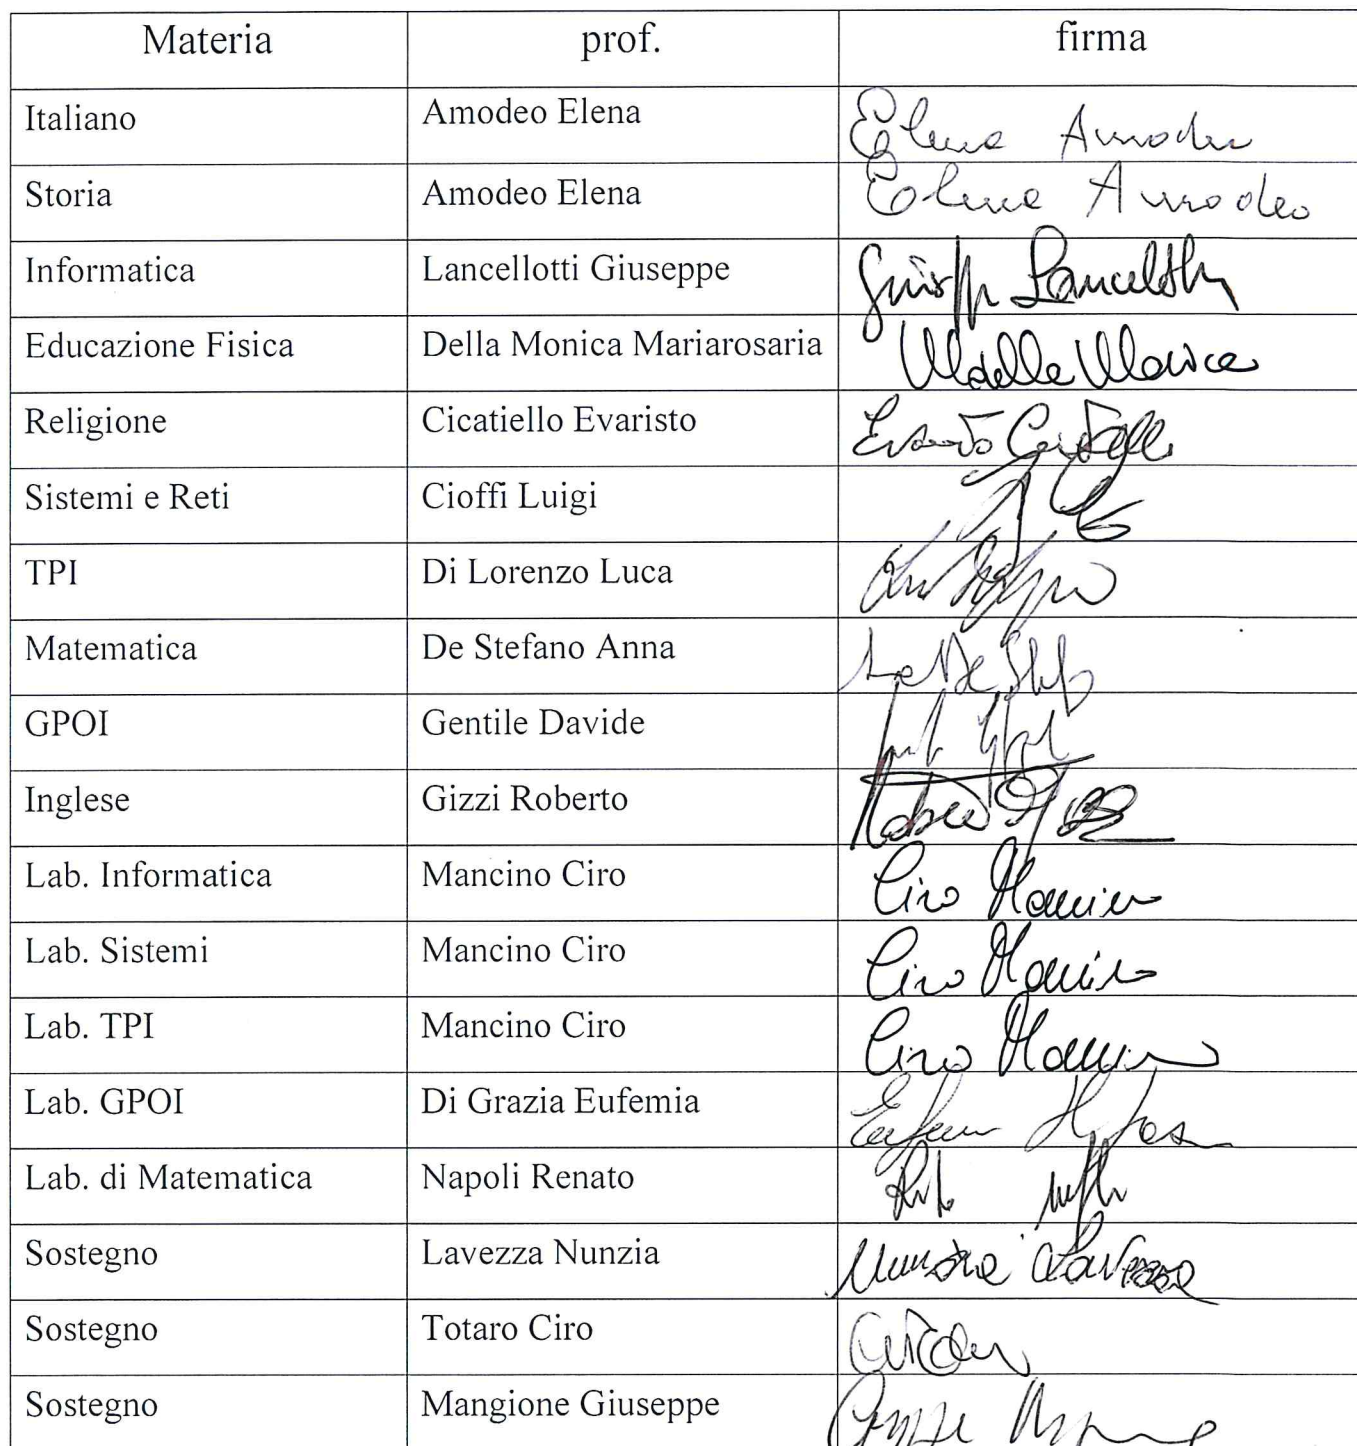 Materia prof. firma
Italiano Amodeo Elena Elena Amodeo
Storia Amodeo Elena Elena Amodeo
Informatica Lancellotti Giuseppe Lancellotti
Educazione Fisica Della Monica Mariarosaria Mdella Monica
Religione Cicatiello Evaristo
Sistemi e Reti Cioffi Luigi
TPI Di Lorenzo Luca
Matematica De Stefano Anna
GPOI Gentile Davide
Inglese Gizzi Roberto
Lab. Informatica Mancino Ciro Ciro Mancino
Lab. Sistemi Mancino Ciro Ciro Mancino
Lab. TPI Mancino Ciro Ciro Mancino
Lab. GPOI Di Grazia Eufemia
Lab. di Matematica Napoli Renato
Sostegno Lavezza Nunzia Nunzia Lavezza
Sostegno Totaro Ciro
Sostegno Mangione Giuseppe